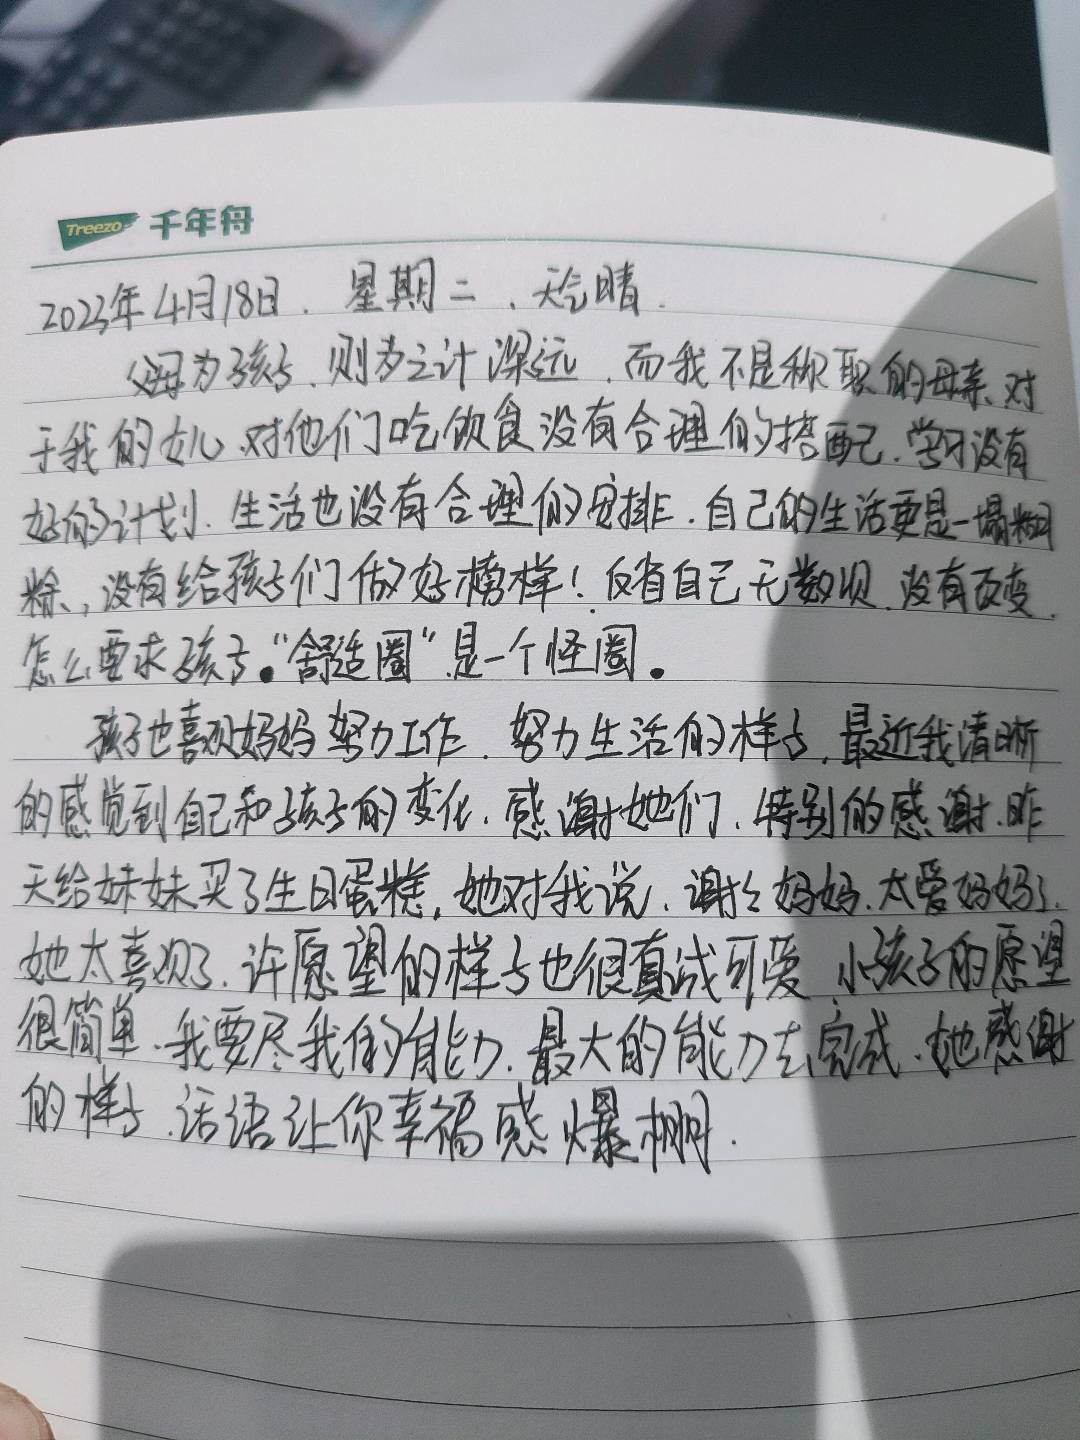 Treezo 千年舟
2023年4月18日、星期二、天气晴.
父母为孩子、则为之计深远、而我不是称职的母亲、对
于我的女儿、对他们吃饮食没有合理的搭配、学习没有
好的计划、生活也没有合理的安排、自己的生活更是一塌糊
糊、没有给孩子们做好榜样!反省自己无数次、没有改变、
怎么要求孩子。"舒适圈"是一个怪圈。
孩子也喜欢妈妈努力工作、努力生活的样子、最近我清晰
的感觉到自己和孩子的变化、感谢她们、特别的感谢、昨
天给妹妹买了生日蛋糕,她对我说、谢谢妈妈、太爱妈妈了、
她太喜欢了、许愿望的样子也很真诚可爱、小孩子的愿望
很简单、我要尽我的能力、最大的能力去完成、她感谢
的样子、话语让你幸福感爆棚.